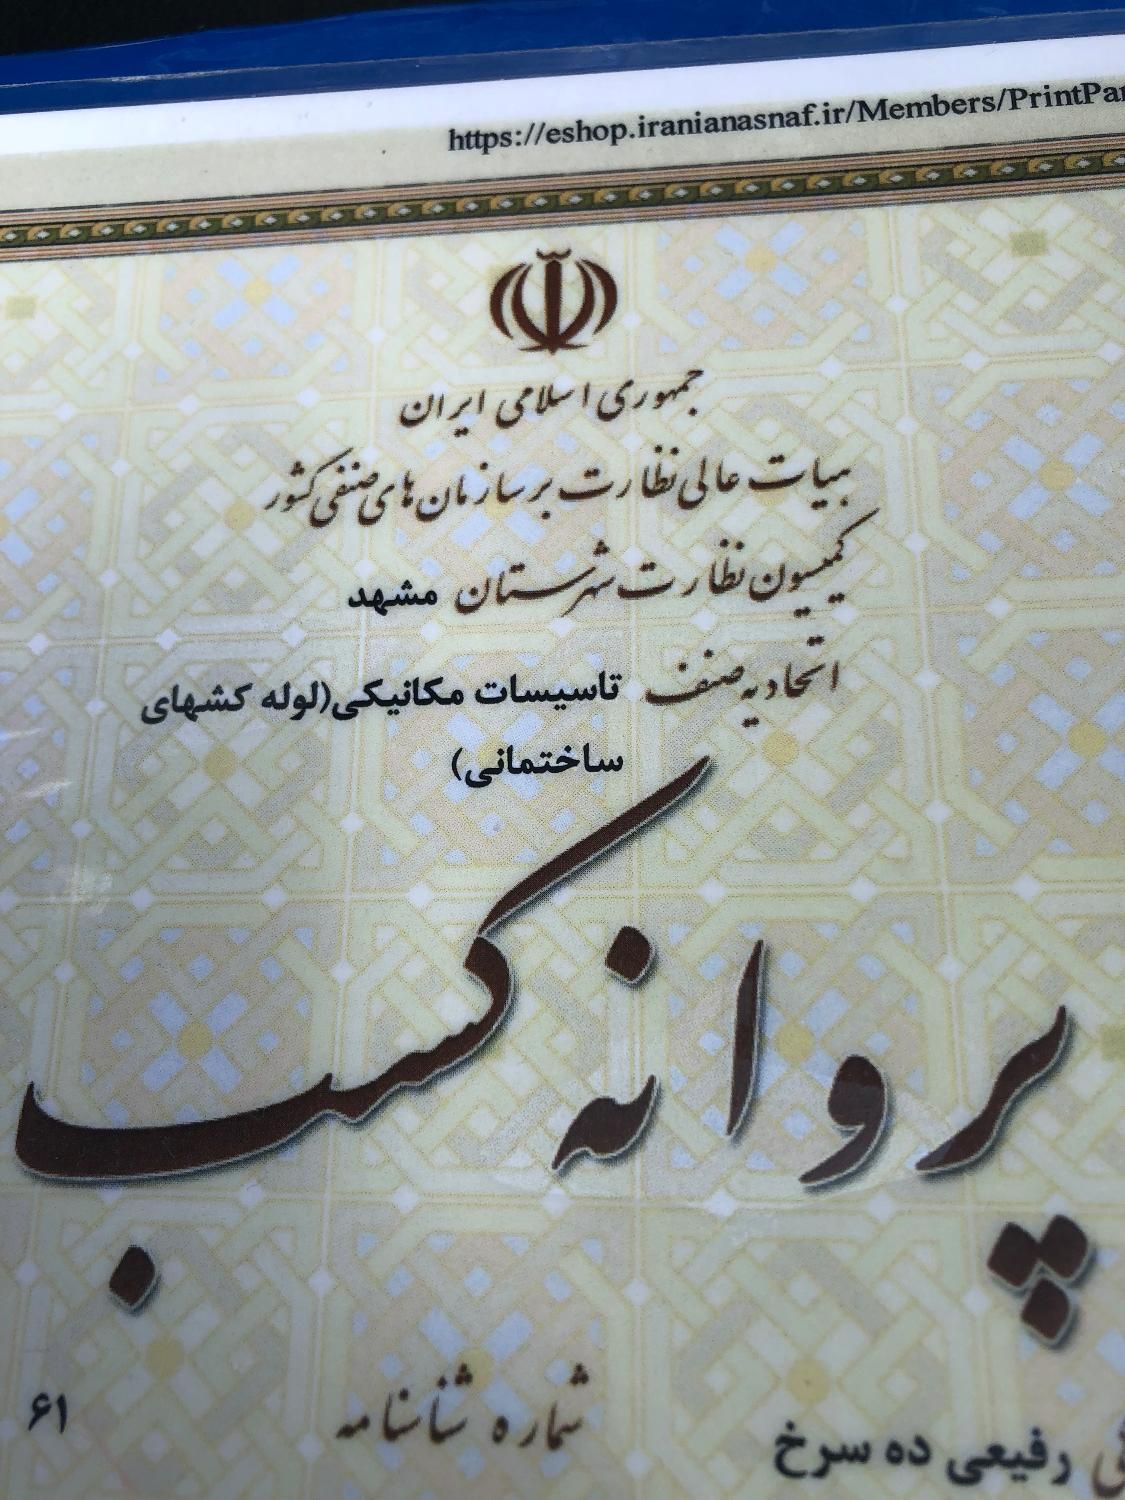 https://eshop.iranianasnaf.ir/Members/PrintPar
جمهوری اسلامی ایران
هیات عالی نظارت بر سازمان های صنفی کشور
کمیسیون نظارت شهرستان مشهد
اتحادیه صنف تاسیسات مکانیکی(لوله کشهای
ساختمانی)
پروانه کسب
رفیعی ده سرخ شماره شناسنامه ۶۱